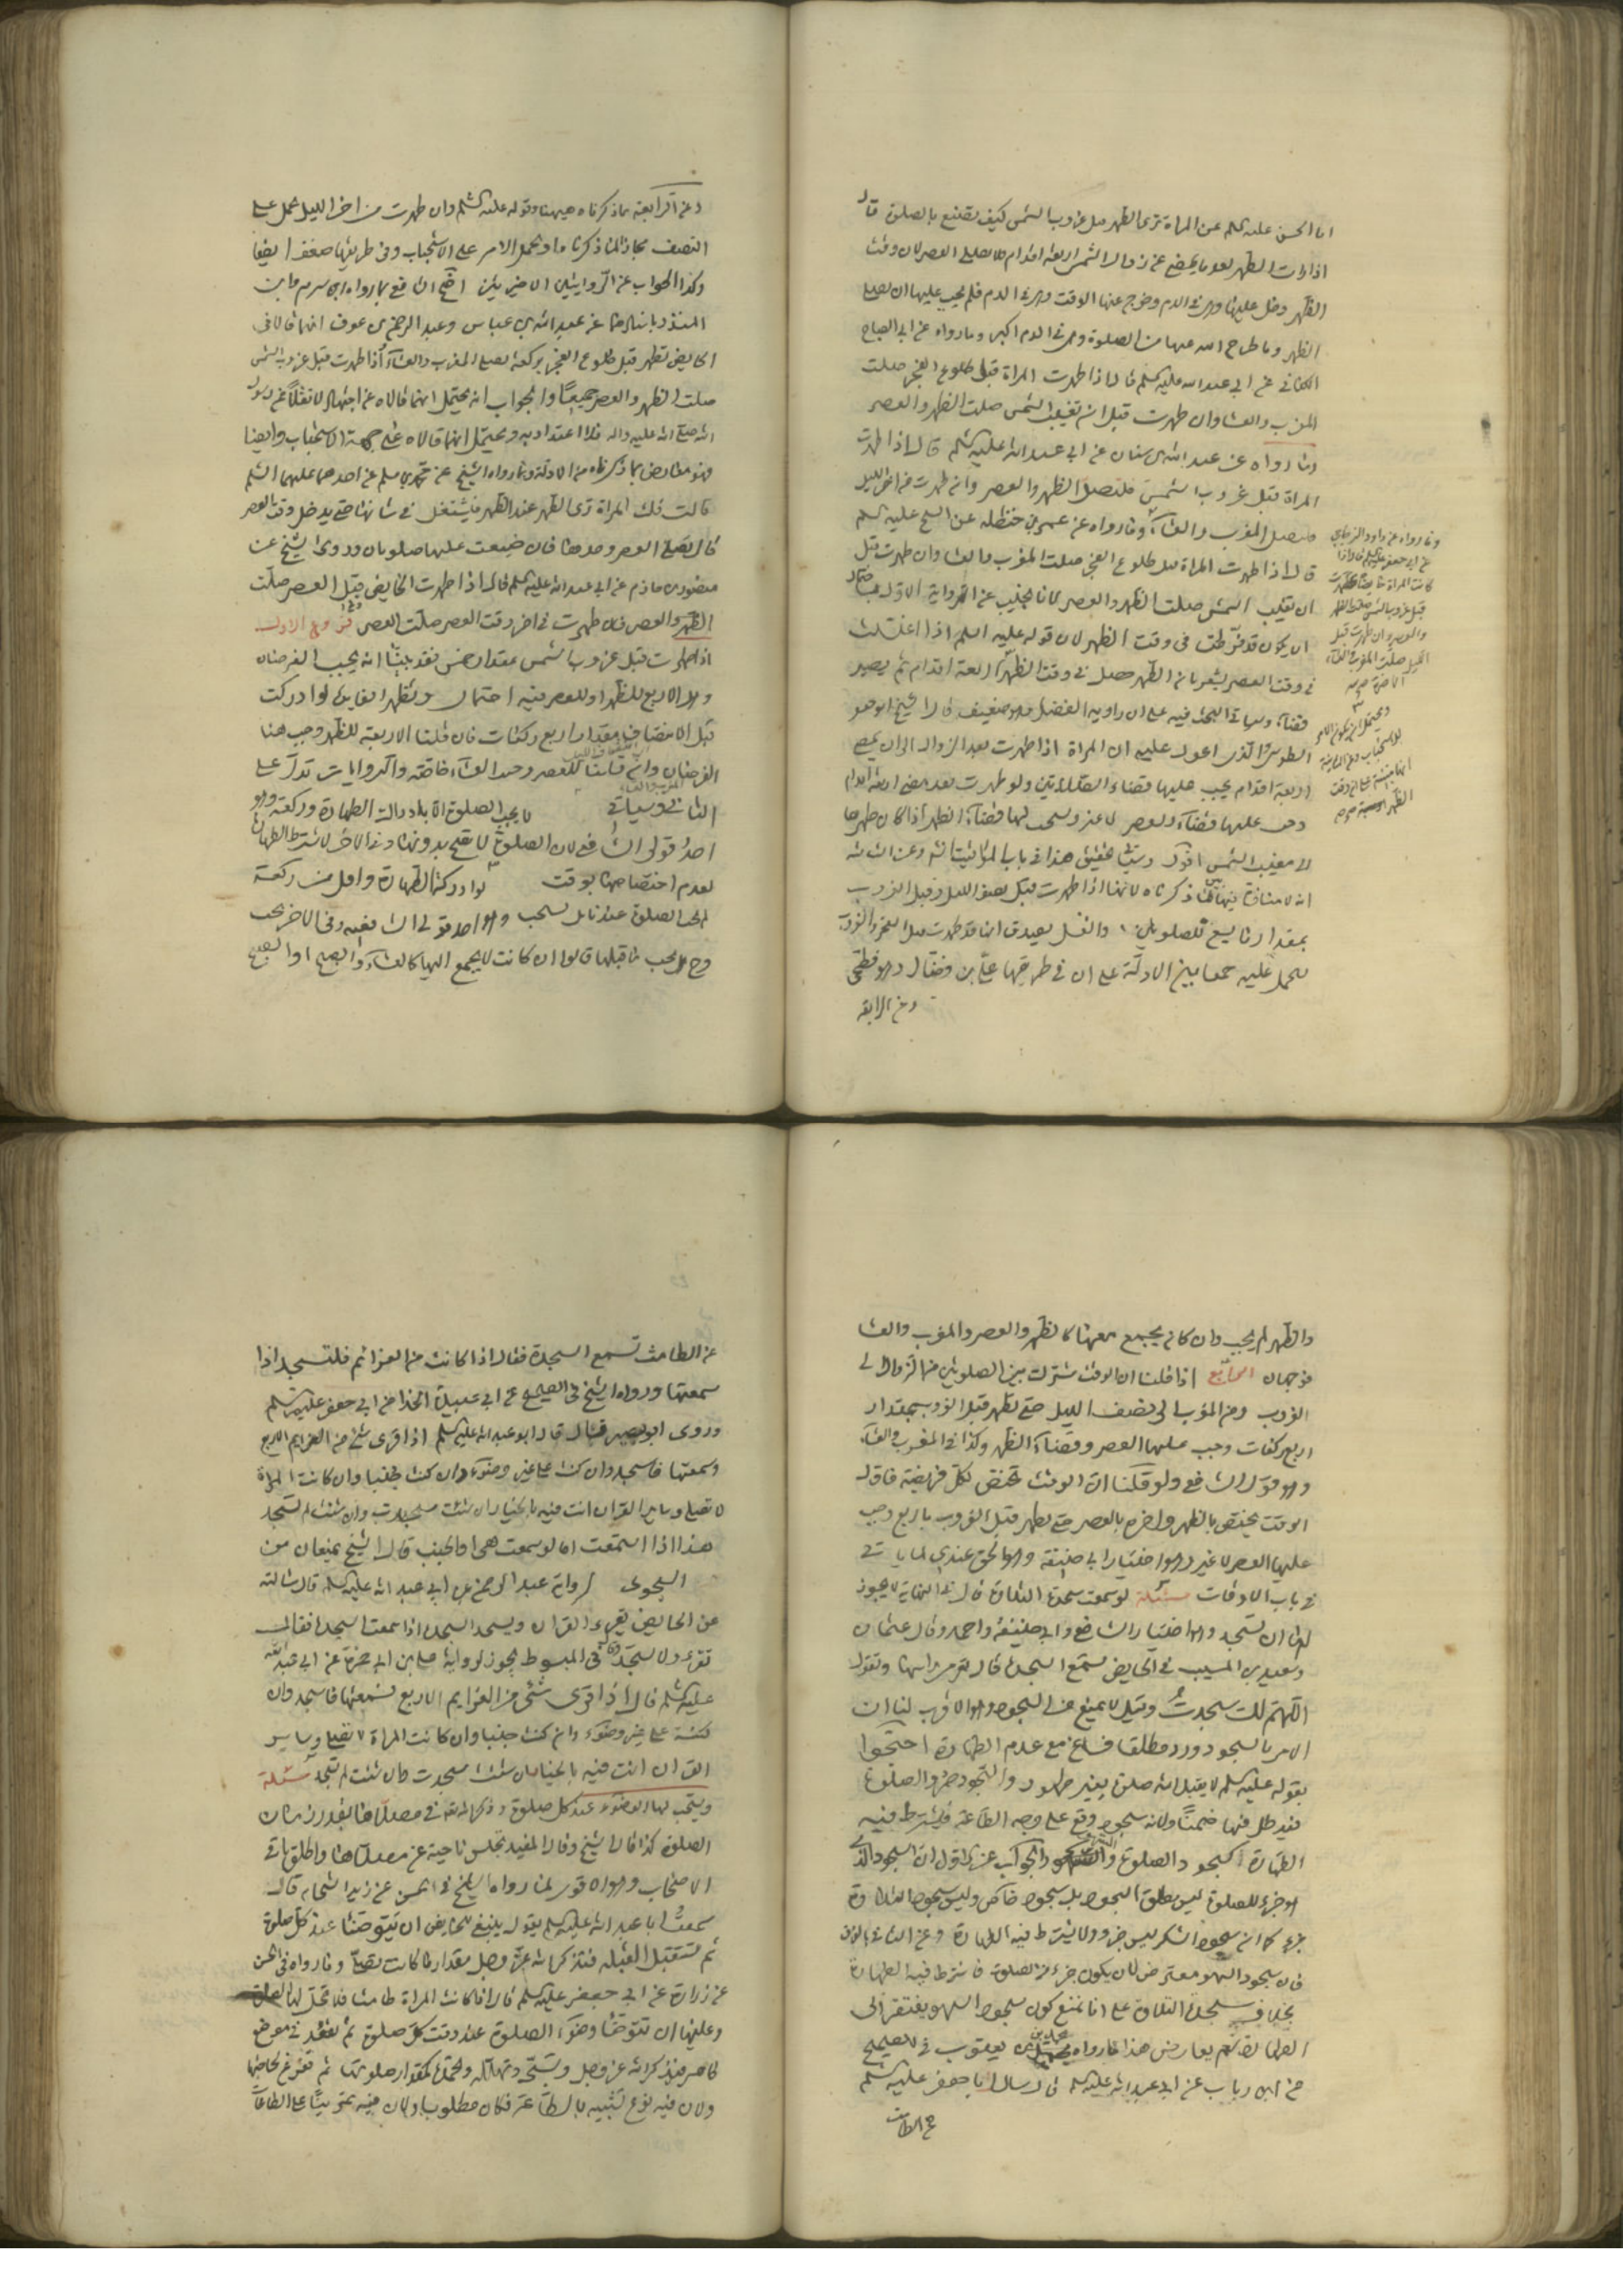 ابا الحسن عليه السلم عن المراة ترى الطهر قبل غروب الشمس كيف تصنع بالصلوة قال
اذا رات الطهر بعد ما يمضى من زوال الشمس اربعة اقدام فلا تصلى الا العصر لان وقت
الظهر دخل عليها وهى فى الدم وخرج عنها الوقت وهى فى الدم فلم يجب عليها ان تصلى
الظهر وما طرح الله عنها من الصلوة وهى فى الدم اكثر وما رواه عن ابى الصباح
الكنانى عن ابى عبد الله عليه السلم قال اذا طهرت المراة قبل طلوع الفجر صلت
المغرب والعشا وان طهرت قبل ان تغيب الشمس صلت الظهر والعصر
وما رواه عن عبد الله بن سنان عن ابى عبد الله عليه السلم قال اذا طهرت
المراة قبل غروب الشمس فلتصل الظهر والعصر وان طهرت من اخر الليل
فلتصل المغرب والعشاء وما رواه عن عمر بن حنظله عن الشيخ عليه السلم
قال اذا طهرت المراة قبل طلوع الفجر صلت المغرب والعشا وان طهرت قبل
ان تغيب الشمس صلت الظهر والعصر لانا نجيب عن الرواية الاولى باحتمال
ان يكون قد فرطت فى وقت الظهر لان قوله عليه السلم اذا اغتسلت
فى وقت العصر يشعر بان الطهر حصل فى وقت الظهر اربعة اقدام ثم يصير
قضاء وسياتى البحث فيه على ان راويه الفضل وهو ضعيف قال الشيخ ابو جعفر
الطوسى والذى اعول عليه ان المراة اذا طهرت بعد الزوال الى ان يمضى
اربعة اقدام يجب عليها قضاء الصلاتين ولو طهرت بعد مضى اربعة اقدام
وجب عليها قضاء العصر لا غير ويستحب لها قضاء الظهر اذا كان طهرها
الى مغيب الشمس اقول وسياتى تحقيق هذا فى باب المواقيت ان شاء الله وعن الثالثة
انه لا منافاة فيها لما ذكرناه لانها اذا طهرت قبل نصف الليل وقبل الغروب
بمقدار ما يسع للصلوتين والغسل يصدق انها قد طهرت قبل الفجر والغروب
فيحمل عليه جمعا بين الادلة على ان فى طريقها على بن فضال وهو فطحى
وعن الرابعة
وما رواه عن داود الزجاجى
عن ابى جعفر عليه السلم قال اذا
كانت المراة حايضا وطهرت
قبل غروب الشمس صلت الظهر
والعصر وان طهرت قبل
الليل صلت المغرب والعشاء
الاخرة
ويحتمل ان يكون الامر
للاستحباب
الظهر
وعن الرابعة بما ذكرناه هيهنا وقوله عليه السلم وان طهرت من اخر الليل يحمل على
النصف مجازا لما ذكرنا او يحمل الامر على الاستحباب وفى طريقها ضعف ايضا
وكذا الجواب عن الروايتين الاخيرتين احتج الشافعى بما رواه الاثرم وابن
المنذر باسنادهما عن عبد الله بن عباس وعبد الرحمن بن عوف انهما قالا فى
الحايض تطهر قبل طلوع الفجر بركعة تصلى المغرب والعشاء واذا طهرت قبل غروب الشمس
صلت الظهر والعصر جميعا والجواب انه يحتمل انهما قالاه عن اجتهاد لا نقلا عن رسول
الله صلى الله عليه واله فلا اعتداد به ويحتمل انهما قالاه على جهة الاستحباب وايضا
فهو معارض بما ذكرناه من الادلة وما رواه الشيخ عن محمد بن مسلم عن احدهما عليهما السلم
قال قلت المراة ترى الطهر عند الظهر فتشتغل فى شانها حتى يدخل وقت العصر
قال تصلى العصر وحدها فان ضيعت عليها صلوتان وروى الشيخ عن
منصور بن حازم عن ابى عبد الله عليه السلم قال اذا طهرت الحايض قبل العصر صلت
الظهر والعصر فان طهرت فى اخر وقت العصر صلت العصر فروع الاول
اذا طهرت قبل غروب الشمس بمقدار خمس فقد بينا انه يجب الفرضان
وهل الاربع للظهر او للعصر فيه احتمال وتظهر الفايدة لو ادركت
قبل الانتصاف مقدار اربع ركعات فان قلنا الاربعة للظهر وجب هنا
الفرضان وان قلنا للعصر وجب العشاء خاصة والروايات تدل على
الثانى وسياتى لا يجب الصلوة الا بادراك الطهارة وركعة وهو
احد قولى الشافعى لان الصلوة لا تصح بدونها وفى الاخر لا يشترط الطهارة
لعدم اختصاصها بوقت لو ادركت الطهارة واقل من ركعة
لم يجب الصلوة عندنا بل يستحب وهو احد قولى الشافعى وفى الاخر يجب
وح هل يجب ما قبلها قالوا ان كانت لا يجمع اليها كالعشاء والصبح او الصبح
والظهر لم يجب وان كان يجمع معها كالظهر والعصر والمغرب والعشا
فوجهان الرابع اذا قلنا ان الوقت مشترك بين الصلوتين من الزوال الى
الغروب ومن المغرب الى نصف الليل حتى تطهر قبل الغروب بمقدار
اربع ركعات وجب عليها العصر وقضاء الظهر وكذا فى المغرب والعشاء
وهو قول الشافعى ولو قلنا ان الوقت مختص لكل فريضة فاول
الوقت يختص بالظهر واخره بالعصر حتى تطهر قبل الغروب باربع وجب
عليها العصر لا غير وهو اختيار ابى حنيفة وهو الحق عندى لما ياتى
فى باب الاوقات مسئلة لو سمعت سجدة التلاوة قال فى النهاية لا يجوز
لها ان تسجد وهو اختيار الشافعى وابى حنيفة واحمد وقال عثمان
وسعيد بن المسيب فى الحايض تستمع السجدة قال تومئ براسها وتقول
اللهم لك سجدت وقيل لا يمنع من السجود وهو الاقرب لنا ان
الامر بالسجود ورد مطلقا فساغ مع عدم الطهارة احتجوا
بقوله عليه السلم لا يقبل الله صلوة بغير طهور والسجود جزء الصلوة
فيدخل فيها ضمنا ولانه سجود وقع على وجه الطاعة فاشترط فيه
الطهارة كسجود الصلوة والسهو والجواب عن الاول ان السجود الذى
هو جزء للصلوة ليس مطلق السجود بل سجود خاص وليس سجود التلاوة
جزء كما ان سجود الشكر ليس جزءا ولا يشترط فيه الطهارة وعن الثانى بالفرق
فان سجود السهو معترض لان يكون جزء من الصلوة فاشترط فيه الطهارة
بخلاف سجدة التلاوة على انا نمنع كون سجود السهو يفتقر الى
الطهارة ثم يعارض هذا بما رواه محمد بن يعقوب فى الصحيح
عن ابن رياب عن ابى عبيدة قال سالت ابا جعفر عليه السلم
عن الطامث
عن الطامث تسمع السجدة فقال اذا كانت من العزائم فلتسجد اذا
سمعتها ورواه الشيخ فى الصحيح عن ابى عبيدة الحذا عن ابى جعفر عليه السلم
وروى ابو بصير قال قال ابو عبد الله عليه السلم اذا قرى شئ من العزايم الاربع
وسمعتها فاسجد وان كنت على غير وضوء وان كنت جنبا وان كانت المراة
لا تصلى وساير القران انت فيه بالخيار ان شئت سجدت وان شئت لم تسجد
هذا اذا استمعت اما لو سمعت هى او الجنب قال الشيخ يمنعان من
السجود لرواية عبد الرحمن عن ابى عبد الله عليه السلم قال سالته
عن الحايض تقرء القران وتسجد السجدة اذا سمعت السجدة فقال
تقرء ولا تسجد وقال فى المبسوط يجوز لرواية على بن ابى حمزة عن ابى عبد الله
عليه السلم قال اذا قرى شئ من العزايم الاربع فسمعتها فاسجد وان
كنت على غير وضوء وان كنت جنبا وان كانت المراة لا تصلى وساير
القران انت فيه بالخيار ان شئت سجدت وان شئت لم تسجد مسئلة
ويستحب لها الوضوء عند كل صلوة وذكر الله تعالى فى مصلاها بقدر زمان
الصلوة كذا قال الشيخ وقال المفيد تجلس ناحية عن مصلاها واطلق باقى
الاصحاب وهو الاقوى لما رواه الشيخ فى الحسن عن زيد الشحام قال
سمعت ابا عبد الله عليه السلم يقول ينبغى للحايض ان تتوضا عند كل صلوة
ثم تستقبل القبلة فتذكر الله عز وجل مقدار ما كانت تصلى وما رواه فى الحسن
عن زرارة عن ابى جعفر عليه السلم قال اذا كانت المراة طامثا فلا تحل لها الصلوة
وعليها ان تتوضا وضوء الصلوة عند وقت كل صلوة ثم تقعد فى موضع
طاهر فتذكر الله عز وجل وتسبحه وتهلله وتحمده كمقدار صلوتها ثم تفرغ لحاجتها
ولان فيه نوع تشبيه بالطاعة فكان مطلوبا ولان فيه تمرينا على الطاعات